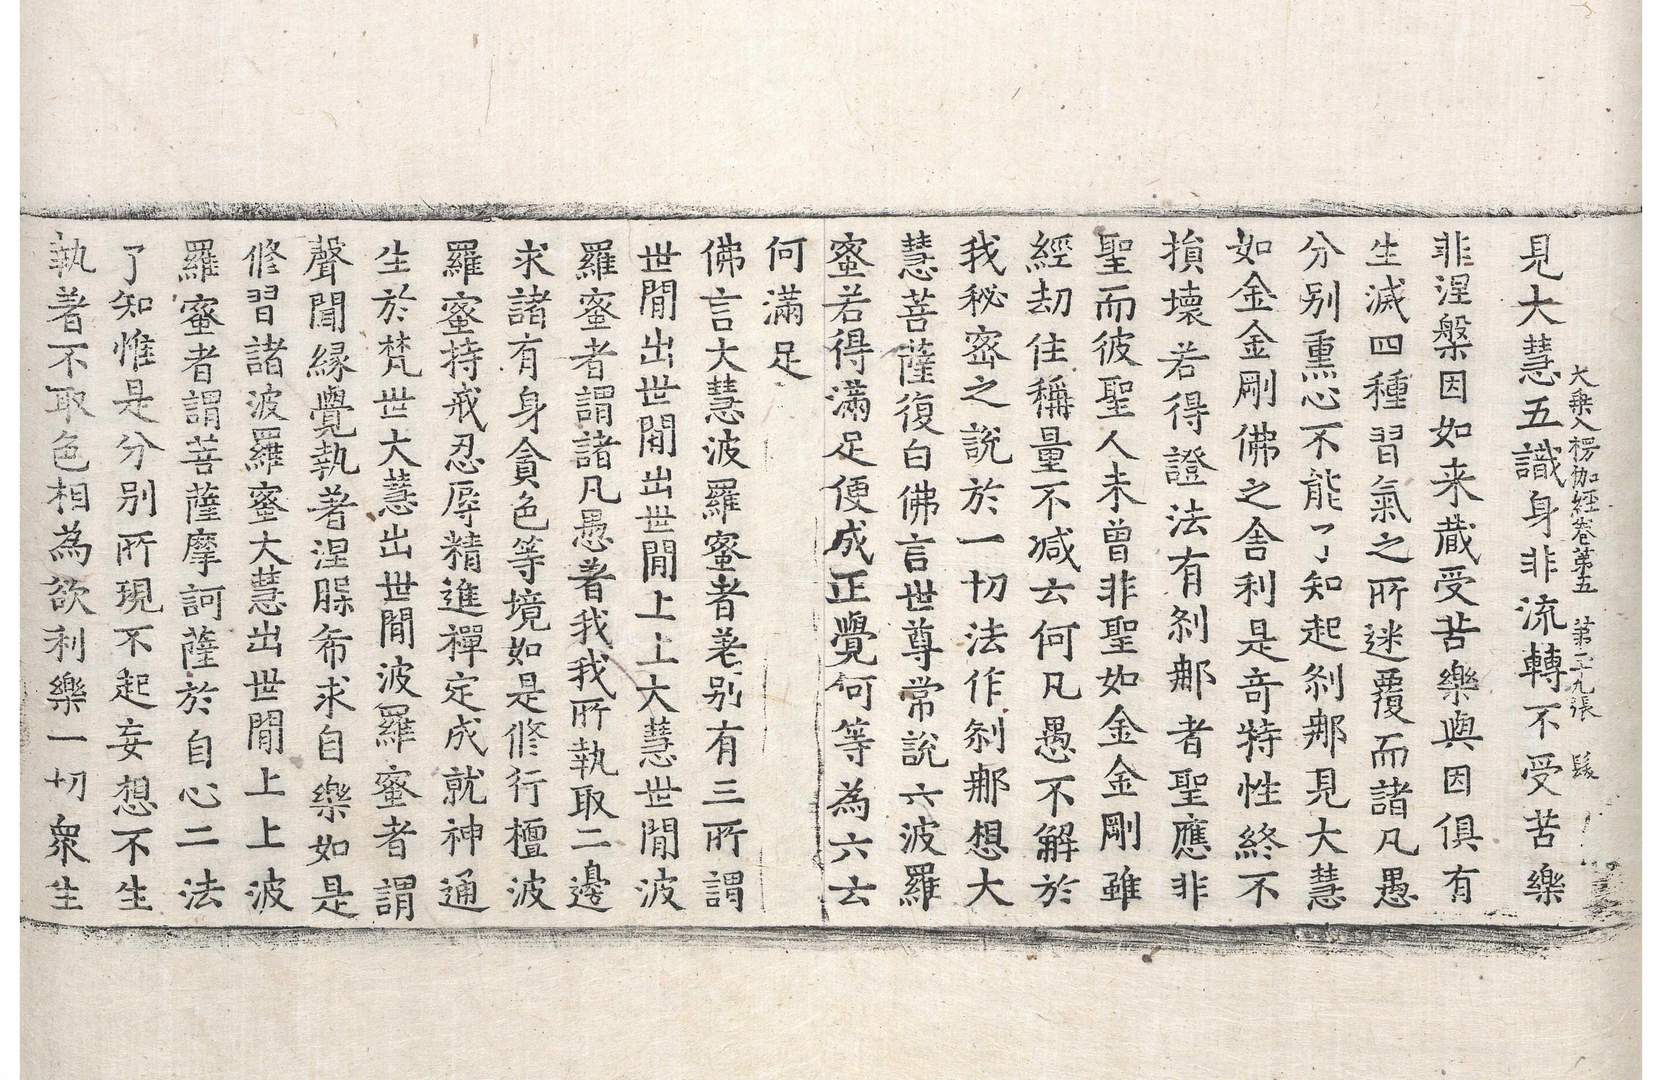 大乘入楞伽經卷第五 第二十九張 髮
見大慧五識身非流轉不受苦樂
非涅槃因如来蔵受苦樂與因俱有
生滅四種習氣之所迷覆而諸凡愚
分別熏心不能了知起剎那見大慧
如金金剛佛之舍利是奇特性終不
損壞若得證法有剎那者聖應非
聖而彼聖人未曾非聖如金金剛雖
經劫住稱量不減云何凡愚不解於
我秘密之說於一切法作剎那想大
慧菩薩復白佛言世尊常說六波羅
蜜若得滿足便成正覺何等為六云
何滿足
佛言大慧波羅蜜者差別有三所謂
世間出世間出世間上上大慧世間波
羅蜜者謂諸凡愚著我我所執取二邊
求諸有身貪色等境如是修行檀波
羅蜜持戒忍辱精進禪定成就神通
生於梵世大慧出世間波羅蜜者謂
聲聞緣覺執著涅槃希求自樂如是
修習諸波羅蜜大慧出世間上上波
羅蜜者謂菩薩摩訶薩於自心二法
了知惟是分別所現不起妄想不生
執著不取色相為欲利樂一切衆生